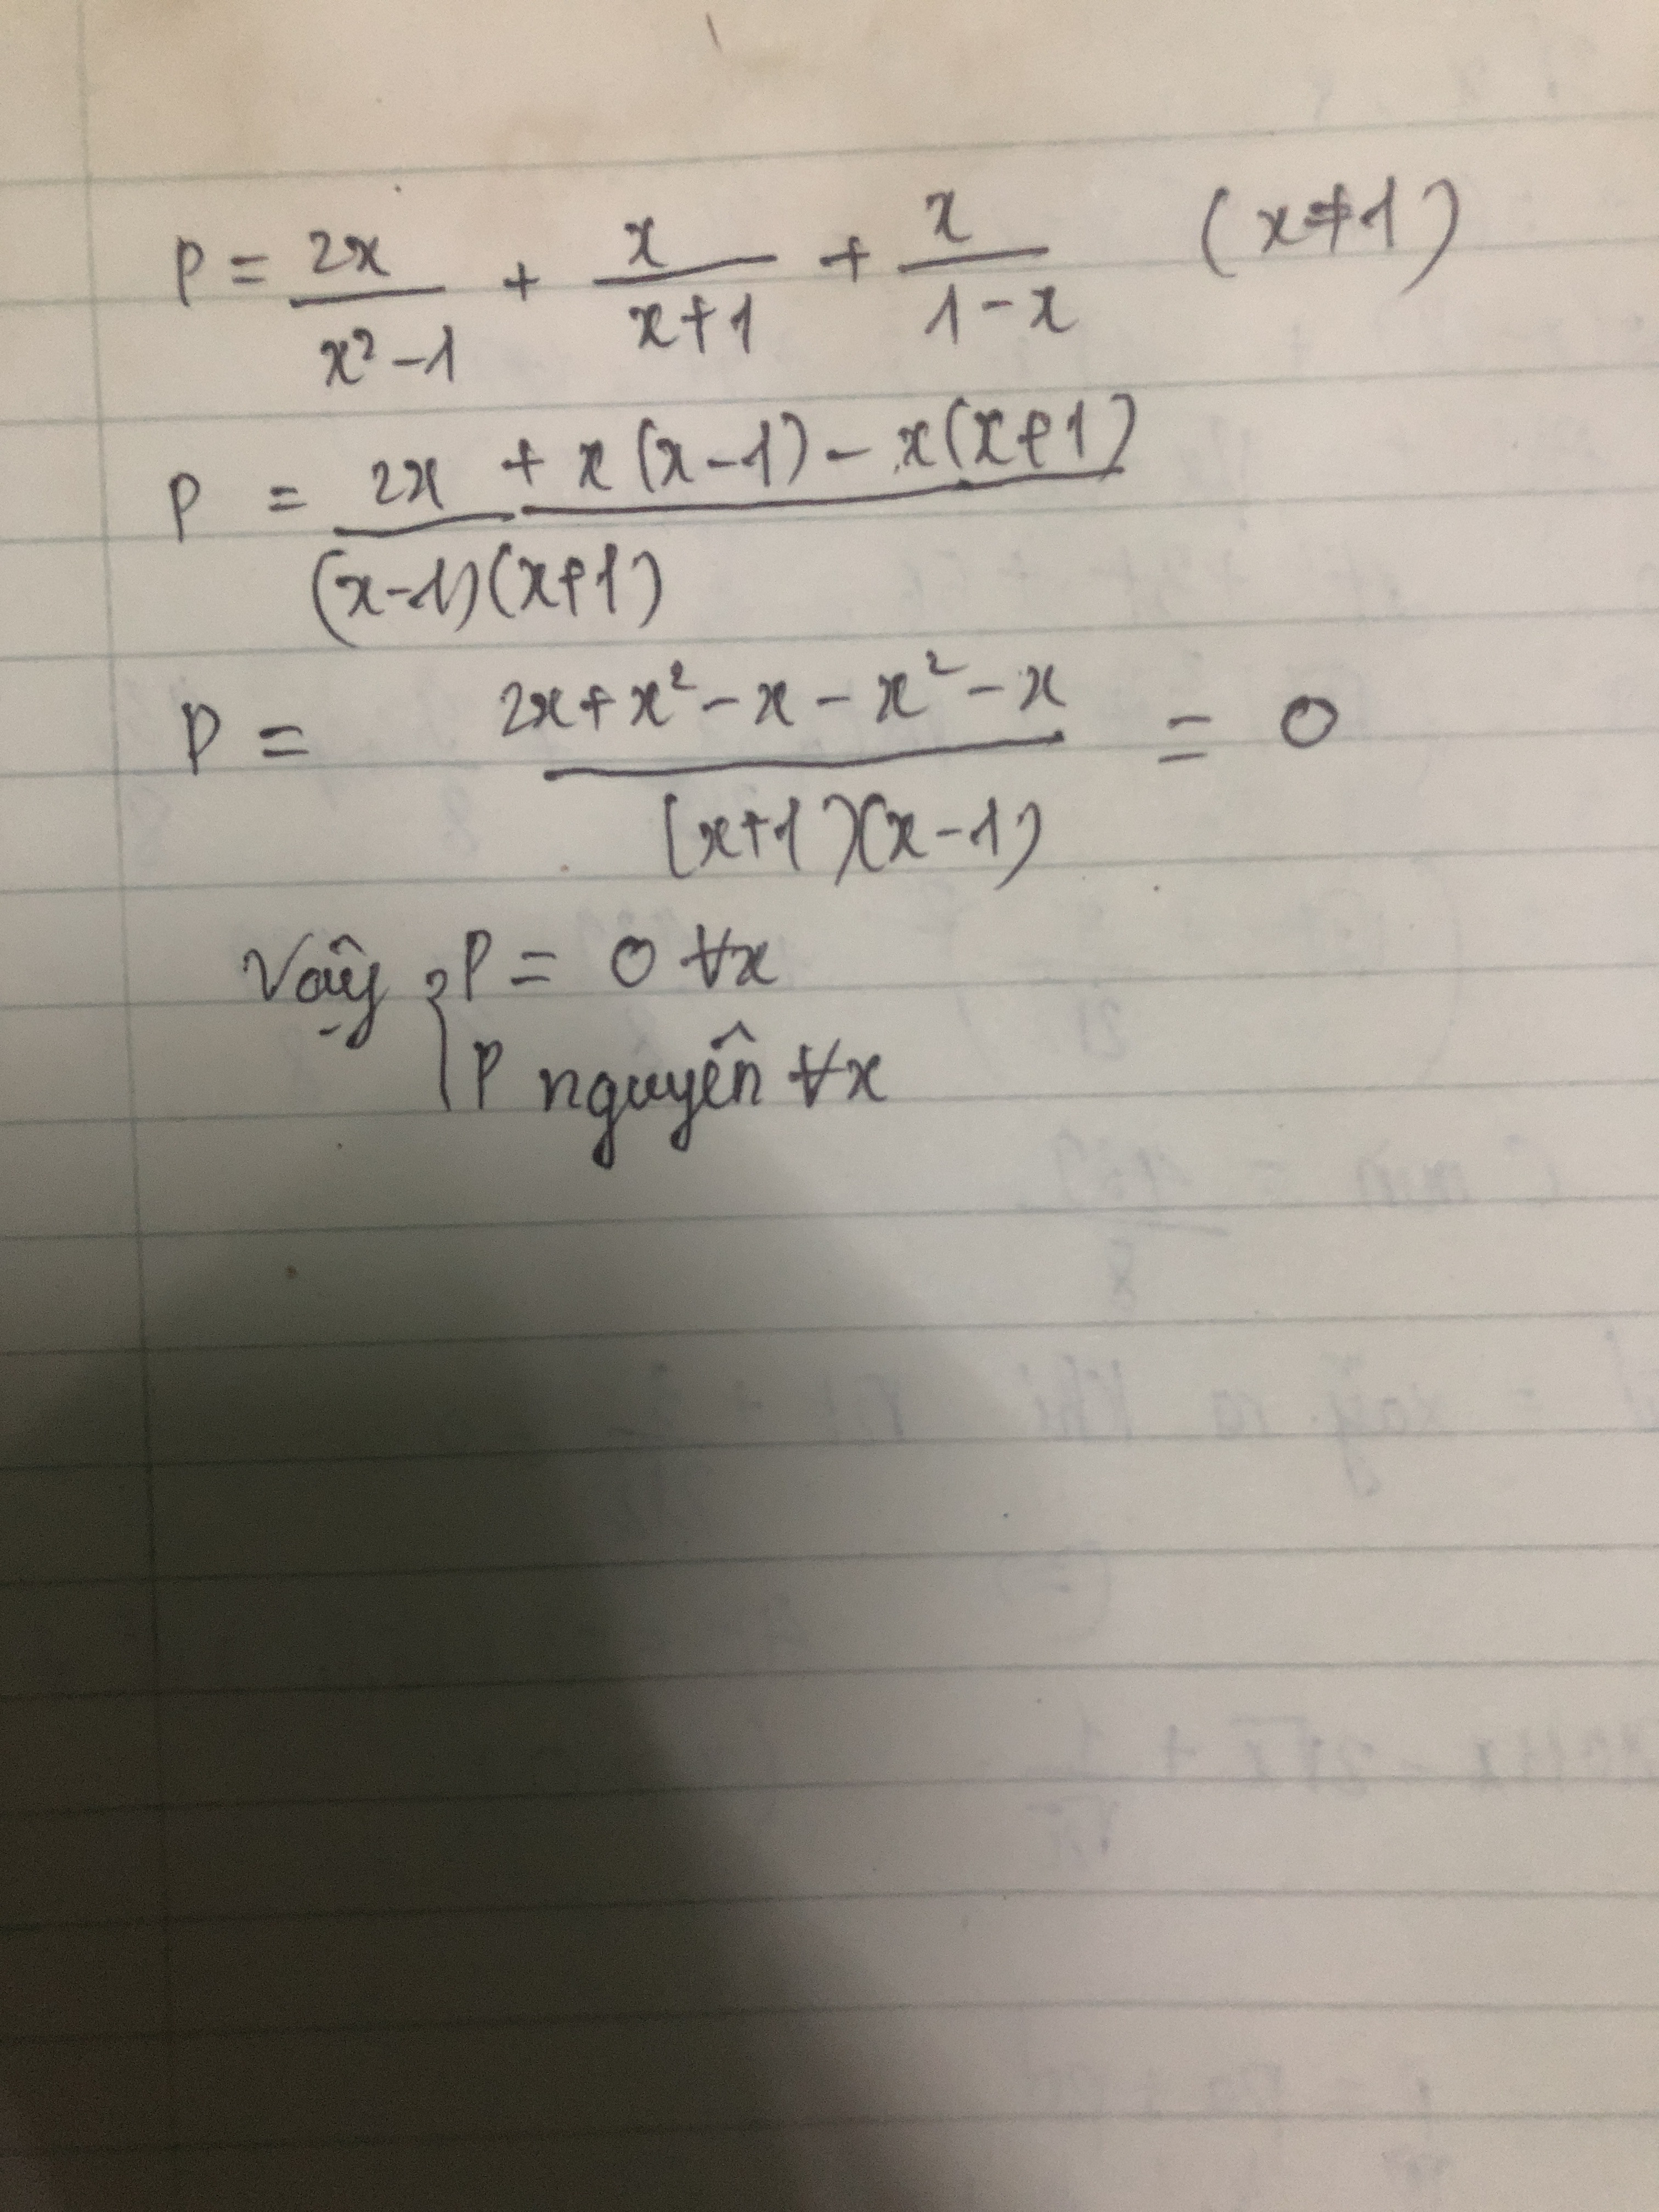 P = \frac{2x}{x²-1} + \frac{x}{x+1} + \frac{x}{1-x} (x≠1)
P = \frac{2x + x(x-1) - x(x+1)}{(x-1)(x+1)}
P = \frac{2x+x²-x-x²-x}{(x+1)(x-1)} = 0
Vậy { P = 0 ∀x
P nguyên ∀x